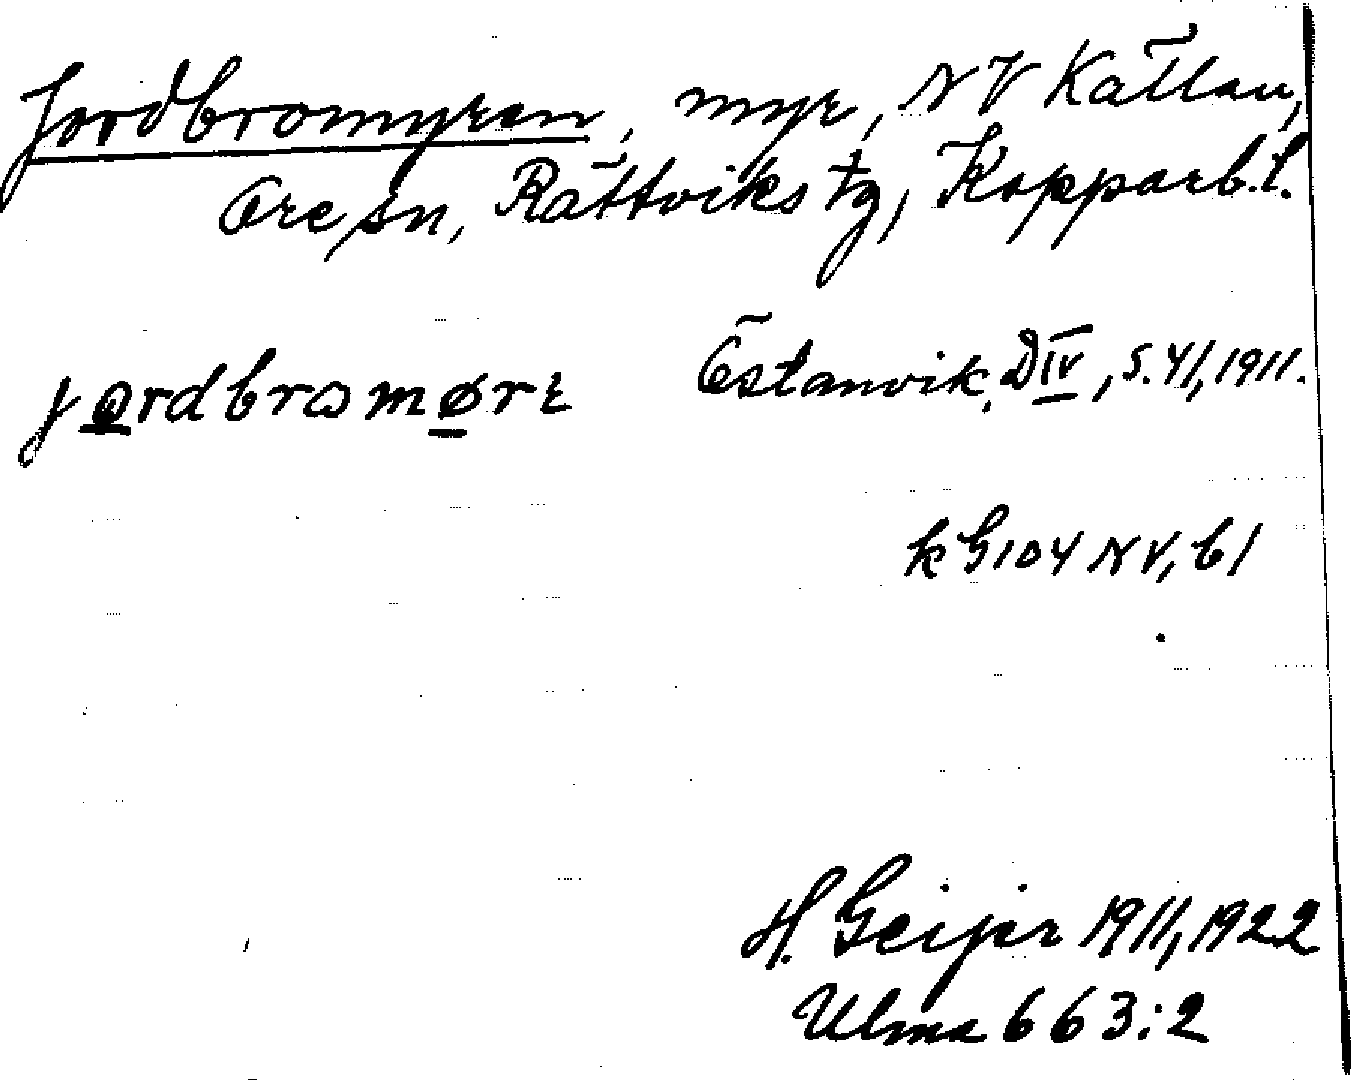 Jordbromyren, myr, NV Kättan,
Ore sn, Rättviks tg, Kopparb.l.
jordbromøre Östanvik, DIV, s.41, 1911.
k G104 NV, b1
H. Geijer 1911, 1922
Ulma 663:2